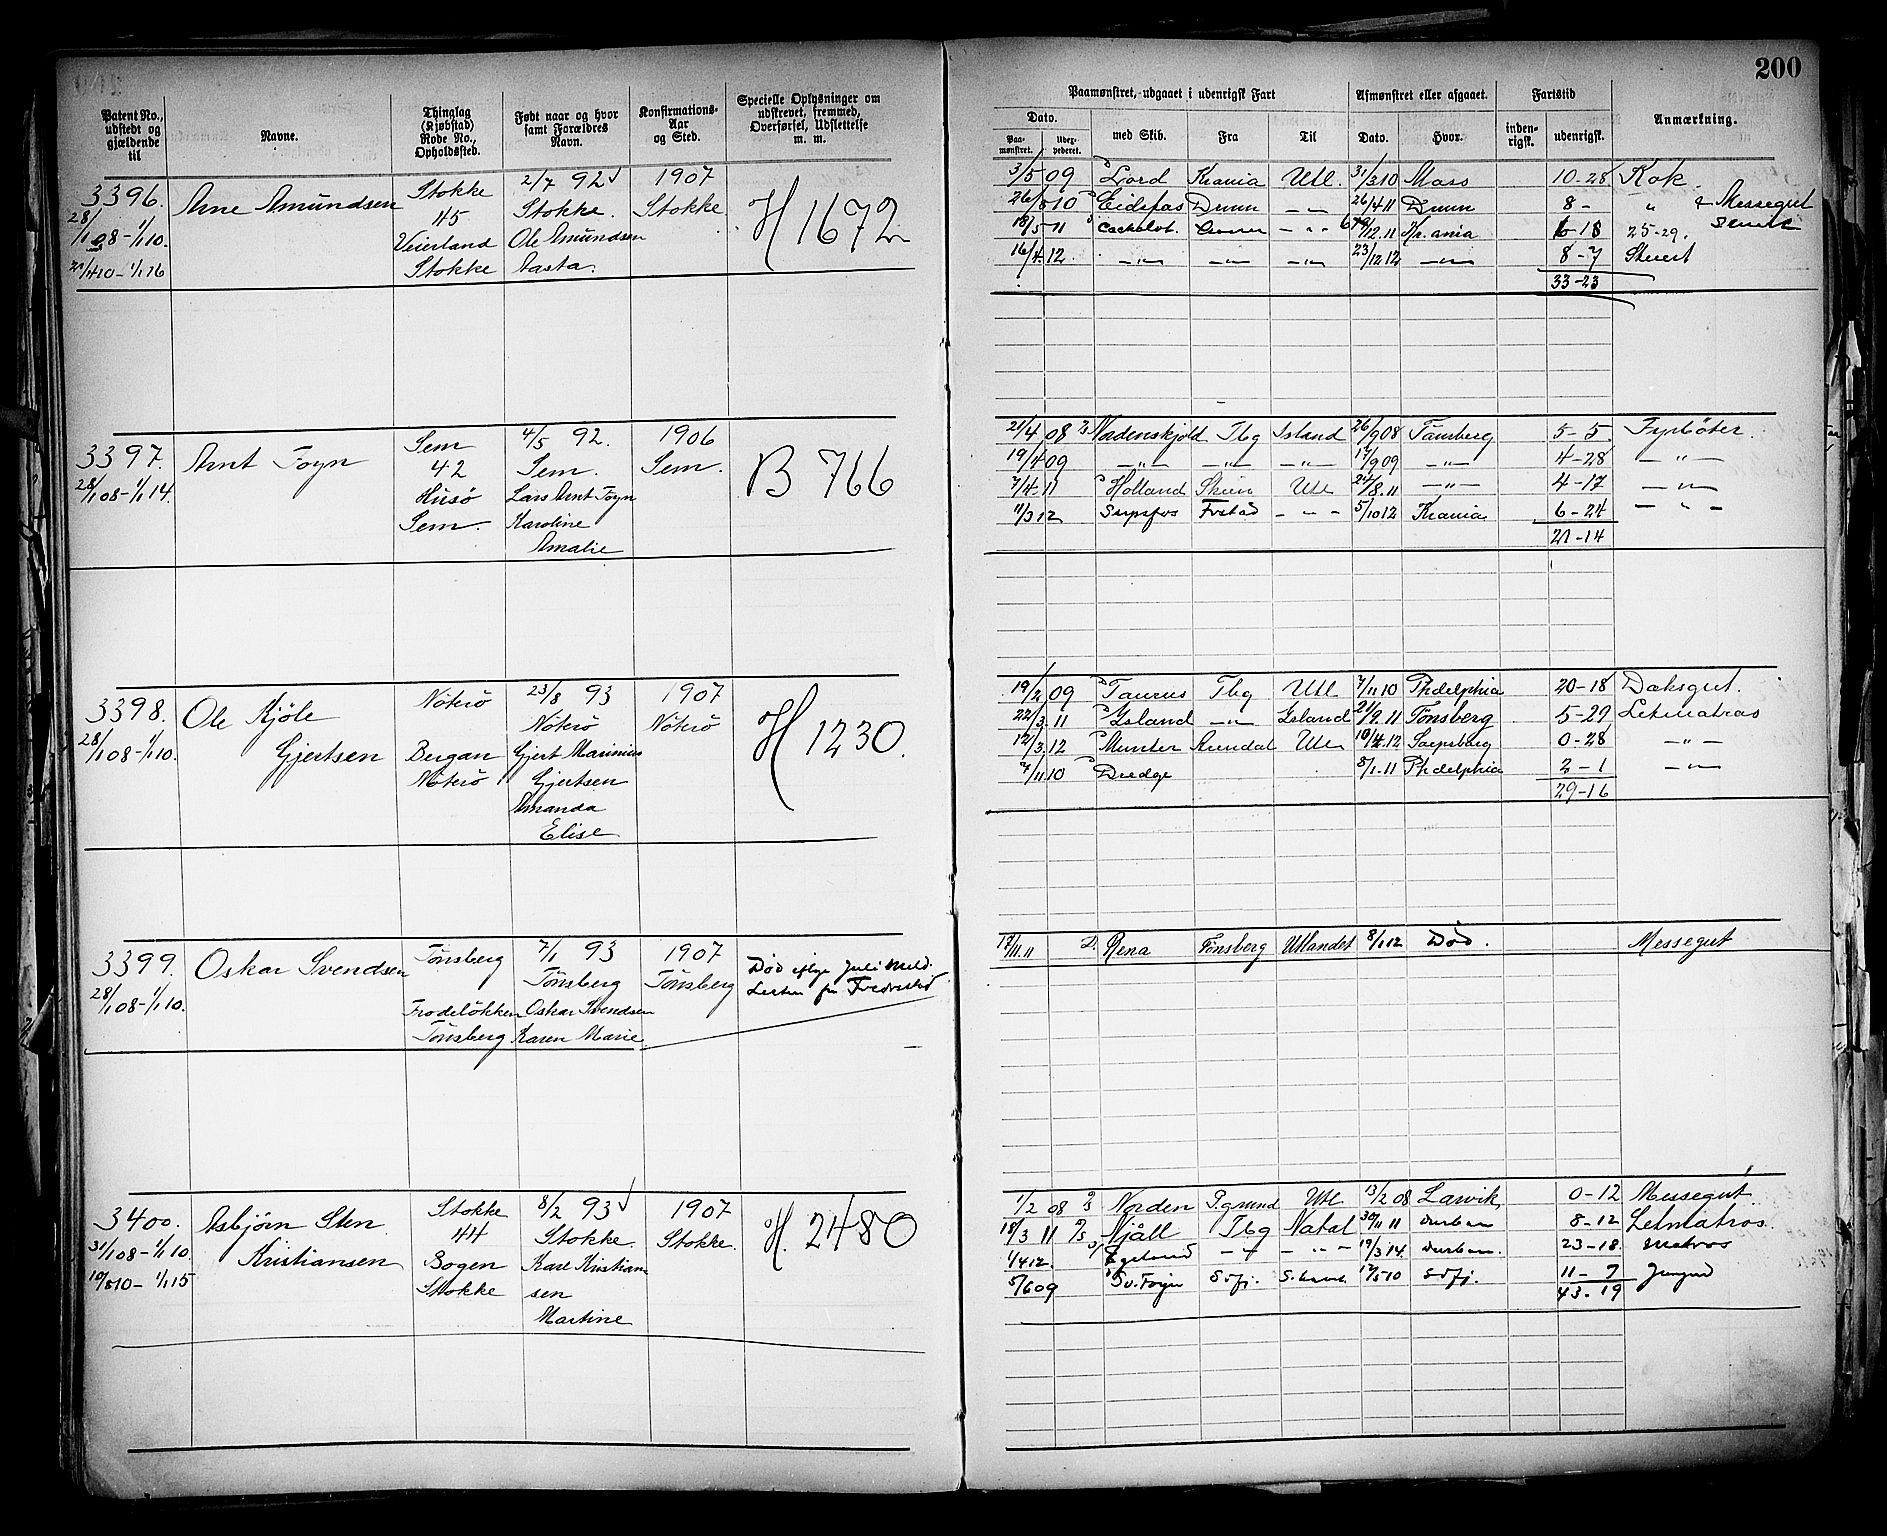 200
Patent No., udstedt og gjældende til
Navne.
Thinglag (Kjøbstad) Rode No., Opholdssted.
Født naar og hvor samt Forældres Navn.
Konfirmations-Aar og Sted.
Specielle Oplysninger om udskrevet, fremmed, Overførsel, Udslettelse m. m.
Paamønstret, udgaaet i udenrigsk Fart
Afmønstret eller afgaaet.
Fartstid
Anmærkning.
Dato.
Paa-mønstret.
Udex-pederet.
med Skib.
Fra
Til
Dato.
Hvor.
inden-rigsk.
udenrigsk.
3396.
28/1 08-1/1 10.
21/4 10-1/1 16
Arne Amundsen
Stokke
45
Veierland
Stokke
2/7 92
Stokke.
Ole Amundsen
Aasta.
1907
Stokke
H 1672
3/5 09 Lord Krania Utl. 31/3 10 Moss 10-28 Kok.
26/8 10 Eidsfos Drmn -„- 26/4 11 Drmn 8- „ & Messegut
18/5 11 -„- 12.11 Kr.ania 6-18 25-29.
16/4.12 -„- -„- -„- 23/12 12 -„- 8-7 Stuert
33-23
3397.
28/1 08-1/1 14.
Arnt Foyn
Sem
42
Husö
Sem.
4/5 92.
Sem.
Lars Arnt Foyn
Karoline
Amalie
1906
Sem.
B 766
21/4 08 Nordenskjold Tbg Island 26/9 08 Tönsberg 5-5 Fyrböter.
19/4 09 -„- -„- -„- 17/9 09 -„- 4-28 -„-
7/4.11 Holland Skien Utl 24/8.11 -„- 4-17 -„-
11/3 12 Sarpsfos Frstad -„- 5/10 12 Krania 6-24 -„-
21-14
3398.
28/1 08-1/1 10.
Ole Kjöle
Gjertsen
Nöterö
Bergan
Nöterö
23/8 93
Nöterö
Gjert Marinius
Gjertsen
Amanda
Elise
1907
Nöterö
H 1230.
19/2 09 Taurus Tbg Utl 7/11 10 Phdelphia 20-18 Daksgut.
22/3.11 Island -„- Island 21/9.11 Tönsberg 5-29 Letmatros
12/3.12 Munter Arendal Utl 10/4.12 Sarpsborg 0-28 -„-
7/11 10 Dredge 8/1.11 Phdelphia 2-1 -„-
29-16
3399.
28/1 08-1/1 10.
Oskar Svendsen
Tönsberg
Frodelökken
Tönsberg
7/1 93
Tönsberg
Oskar Svendsen
Karen Marie
1907
Tönsberg
Död ifölge Juli Meld.
Listen fra Fredrikstad
17/11.11 D. Rena Tönsberg Utlandet 8/1 12 Död. Messegut
3400.
31/1 08-1/1 10.
10/8 10-1/1 15
Asbjörn Sten
Kristiansen
Stokke
44
Bogen
Stokke
8/2 93
Stokke.
Karl Kristian
sen
Martine
1907
Stokke.
H. 2480
1/2 08 Norden P.grund Utl 13/2 08 Larvik 0-12 Messegut
18/3 11 Njåll Tbg Natal 30/11 11 Durban 8-12 Letmatros.
1/4 12. Egeland -„- -„- 19/3 14. Durban. 23-18. Matros
5/6 09 Sv. Foyn S.fj. 17/5 10 S.fj. 11-7 Jungmd
43-19